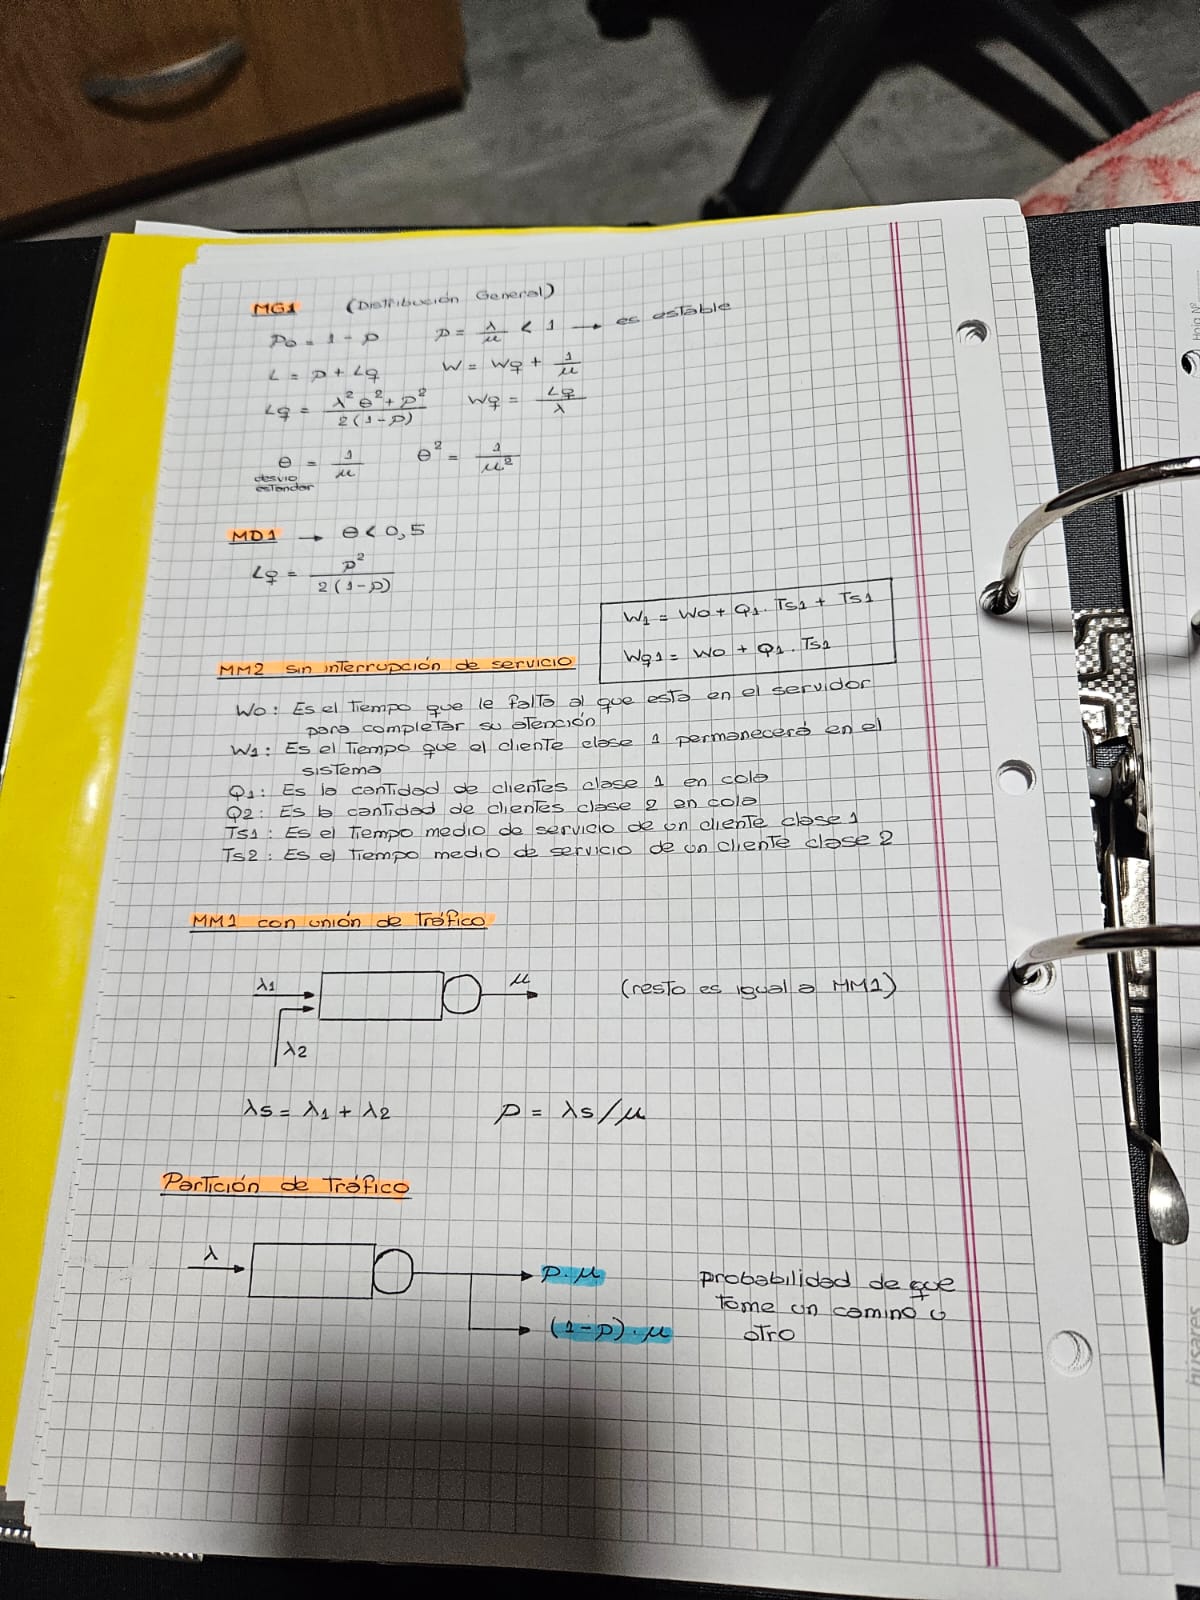 MG1 (Distribución General)
Po = 1 - ρ    ρ = λ/μ < 1 → es estable
L = ρ + Lq    W = Wq + 1/μ
Lq = (λ² θ² + ρ²) / 2(1-ρ)    Wq = Lq/λ
θ = 1/μ    θ² = 1/μ²
desvio
estandar
MD1 → θ < 0,5
Lq = ρ² / 2(1-ρ)
W1 = Wo + Q1 . Ts1 + Ts1
Wq1 = Wo + Q1 . Ts1
MM2 sin interrupción de servicio
Wo : Es el Tiempo que le falta al que esta en el servidor
para completar su atención
W1 : Es el Tiempo que el cliente clase 1 permanecerá en el
sistema
Q1 : Es la cantidad de clientes clase 1 en cola
Q2 : Es la cantidad de clientes clase 2 en cola
Ts1 : Es el Tiempo medio de servicio de un cliente clase 1
Ts2 : Es el Tiempo medio de servicio de un cliente clase 2
MM1 con unión de Tráfico
λ1    μ    (resto es igual a MM1)
λ2
λs = λ1 + λ2    ρ = λs/μ
Partición de Tráfico
λ    p.μ    probabilidad de que
tome un camino u
(1-p).μ    otro
Hoja Nº